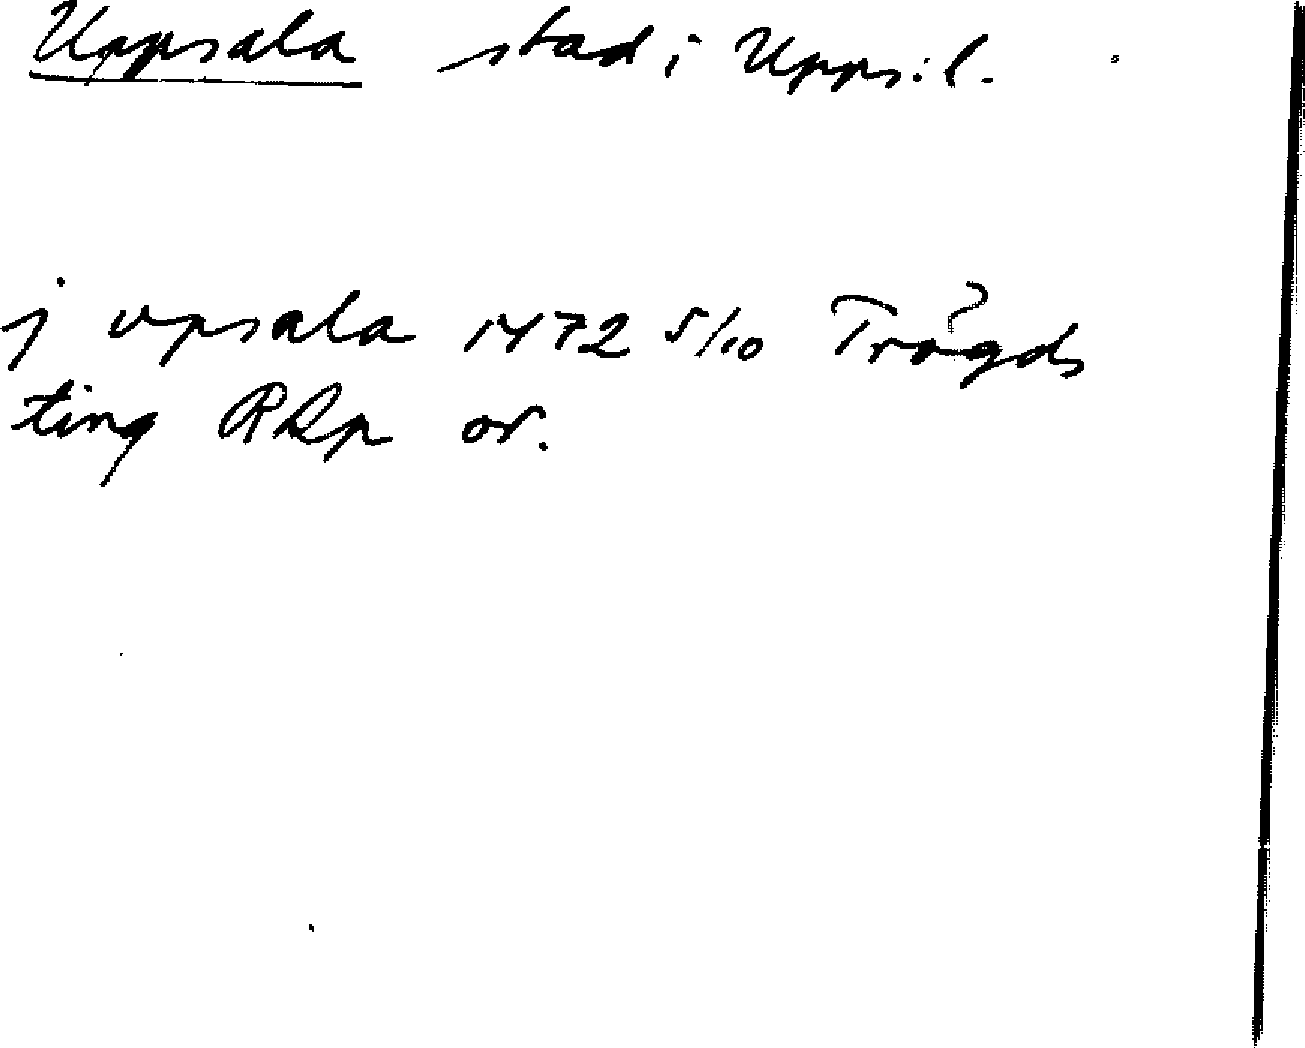 Uppsala stad i Upps. l.
j vpsala 1472 5/10 Trögds
ting RAp or.